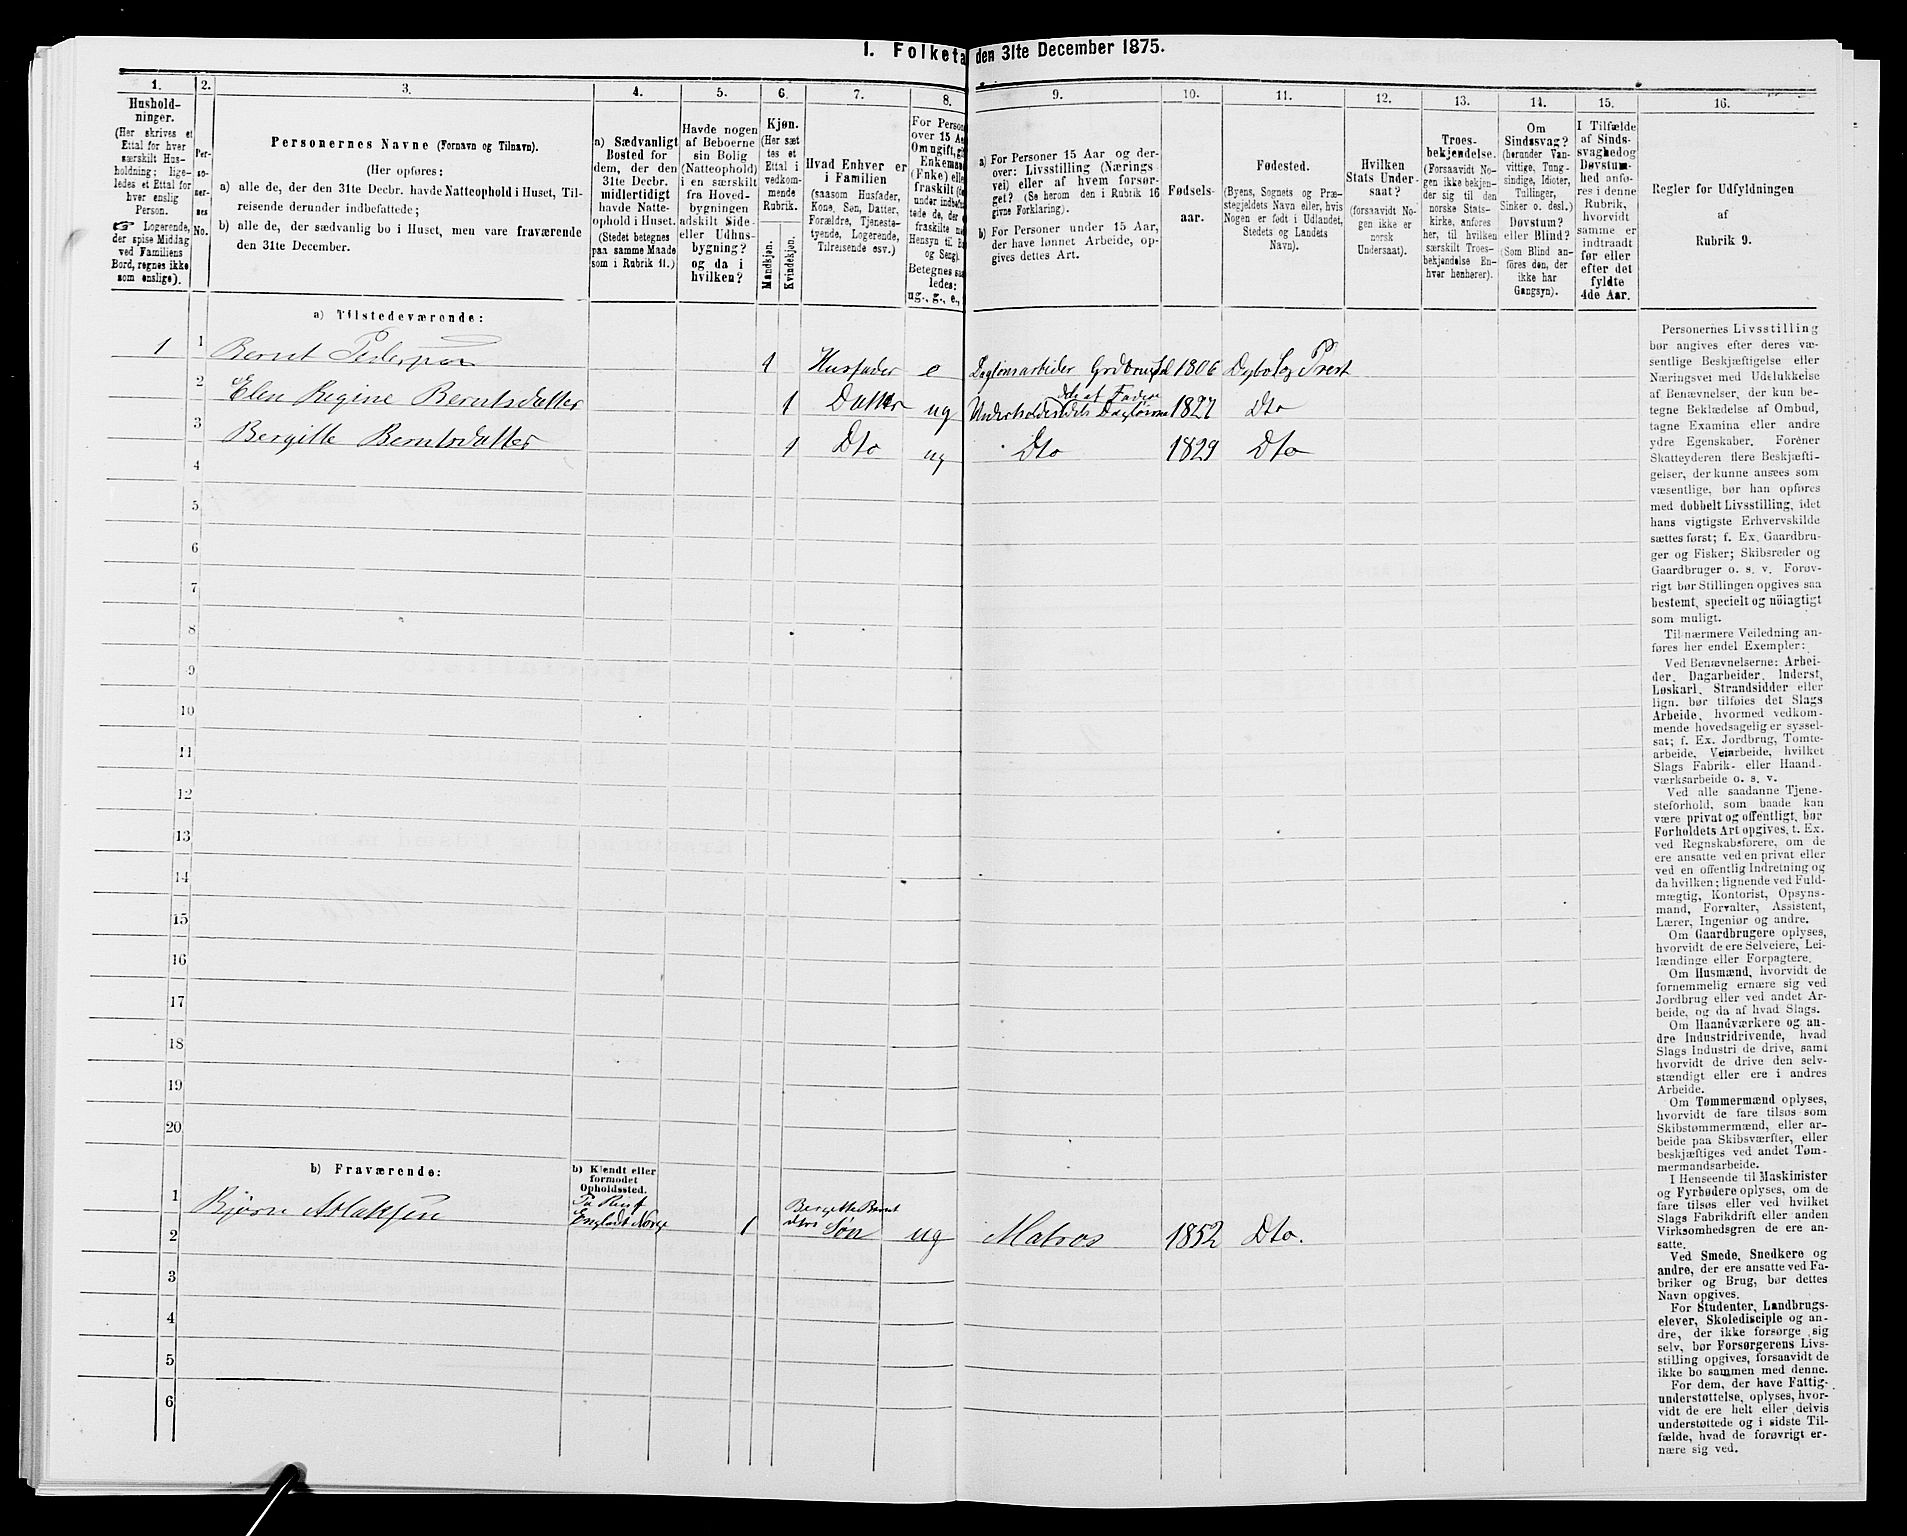 1. Folketa
den 31te December 1875.
1.
2.
3.
4.
5.
6.
7.
8.
9.
10.
11.
12.
13.
14.
15.
16.
Hushold-
ninger.
(Her skrives et
Ettal for hver
særskilt Hus-
holdning; lige-
ledes et Ettal for
hver enslig
Person.
☞ Logerende,
der spise Middag
ved Familiens
Bord, regnes ikke
som enslige).
Per-
so-
ner-
nes
No.
Personernes Navne (Fornavn og Tilnavn).
(Her opføres:
a) alle de, der den 31te Decbr. havde Natteophold i Huset, Til-
reisende derunder indbefattede;
b) alle de, der sædvanlig bo i Huset, men vare fraværende
den 31te December.
a) Sædvanligt
Bosted for
dem, der den
31te Decbr.
midlertidigt
havde Natte-
ophold i Huset.
(Stedet betegnes
paa samme Maade
som i Rubrik 11.)
Havde nogen
af Beboerne
sin Bolig
(Natteophold)
i en særskilt
fra Hoved-
bygningen
adskilt Side-
eller Udhus-
bygning?
og da i
hvilken?
Kjøn.
(Her sæt
tes et
Ettal i
vedkom-
mende
Rubrik.
Mandkjøn.
Kvindekjøn.
Hvad Enhver er
i Familien
(saasom Husfader,
Kone, Søn, Datter,
Forældre, Tjeneste-
tyende, Logerende,
Tilreisende osv.)
For Person
over 15 Aa
Om ugift, gi
Enkemand
(Enke) elle
fraskilt (de
under indbefa
tede de, der e
fraskilte me
Hensyn til Bo
og Seng).
Betegnes saa
ledes:
ug., g., e.,
a) For Personer 15 Aar og der-
over: Livsstilling (Nærings
vei) eller af hvem forsør-
get? (Se herom den i Rubrik 16
givne Forklaring).
b) For Personer under 15 Aar,
der have lønnet Arbeide, op-
gives dettes Art.
Fødsels-
aar.
Fødested.
(Byens, Sognets og Præ-
stegjeldets Navn eller, hvis
Nogen er født i Udlandet,
Stedets og Landets
Navn).
Hvilken
Stats Under-
saat?
(forsaavidt No-
gen ikke er
norsk
Undersaat).
Troes-
bekjendelse.
(Forsaavidt No-
gen ikke bekjen-
der sig til den
norske Stats-
kirke, anføres
her, til hvilken
særskilt Troes-
bekjendelse En-
hver henhører).
Om
Sindssvag?
(herunder Van-
vittige, Tung-
sindige, Idioter,
Tullinger,
Sinker o. desl.)
Døvstum?
eller Blind?
(Som Blind an-
føres den, der
ikke har
Gangsyn).
I Tilfælde
af Sinds-
svaghed og
Døvstum-
hed anfø-
res i denne
Rubrik,
hvorvidt
samme er
indtraadt
før eller
efter det
fyldte
4de Aar.
Regler for Udfyldningen
af
Rubrik 9.
a) Tilstedeværende:
1
1 Bernt Pederson 1 Husfader e Daglønsarbeider 1806
2 Elen Regine Berntsdatter 1 Datter ug 1827 Dto
3 Bergitte Berntsdatter 1 Dto ug Dto 1829 Dto
4
5
6
7
8
9
10
11
12
13
14
15
16
17
18
19
20
b) Fraværende:
b) Kjendt eller
formodet
Opholdssted.
1 Bjørn Atlaksen 1 Bergitte Bernt
Søn ug Matros 1852 Dto.
2
3
4
5
6
Personernes Livsstilling
bør angives efter deres væ-
sentlige Beskjæftigelse eller
Næringsvei med Udelukkelse
af Benævnelser, der kun be-
tegne Beklædelse af Ombud,
tagne Examina eller andre
ydre Egenskaber. Forener
Skatteyderen flere Beskjæfti-
gelser, der kunne ansees som
væsentlige, bør han opføres
med dobbelt Livsstilling, idet
hans vigtigste Erhvervskilde
sættes først; f. Ex. Gaardbru-
ger og Fisker; Skibsreder og
Gaardbruger o. s. v. Forøv-
rigt bør Stillingen opgives saa
bestemt, specielt og nöiagtigt
som muligt.
Til nærmere Veiledning an-
føres her endel Exempler:
Ved Benævnelserne: Arbei-
der, Dagarbeider, Inderst,
Løskarl, Strandsidder eller
lign. bør tilføies det Slags
Arbeide, hvormed vedkom-
mende hovedsagelig er syssel-
sat; f. Ex. Jordbrug, Tomte-
arbeide, Veiarbeide, hvilket
Slags Fabrik- eller Haand-
værksarbeide o. s. v.
Ved alle saadanne Tjene-
steforhold, som baade kan
være privat og offentligt, bør
Forholdets Art opgives, t. Ex.
ved Regnskabsførere, om de
ere ansatte ved en privat eller
ved en offentlig Indretning og
da hvilken; lignende ved Fuld-
mægtig, Kontorist, Opsyns-
mand, Forvalter, Assistent,
Lærer, Ingeniør og andre.
Om Gaardbrugere oplyses,
hvorvidt de ere Selveiere, Lei-
lændinge eller Forpagtere.
Om Husmænd, hvorvidt de
fornemmelig ernære sig ved
Jordbrug eller ved andet Ar-
beide, og da af hvad Slags.
Om Haandværkere og an-
dre Industridrivende, hvad
Slags Industri de drive, samt
hvorvidt de drive den selv-
stændigt eller ere i andres
Arbeide.
Om Tømmermænd oplyses,
hvorvidt de fare tilsøs som
Skibstømmermænd, eller ar-
beide paa Skibsværfter, eller
beskjæftiges ved andet Tøm-
mermandsarbeide.
I Henseende til Maskinister
og Fyrbødere oplyses, om de
fare tilsøs eller ved hvilket
Slags Fabrikdrift eller anden
Virksomhedsgren de ere an-
satte.
Ved Smede, Snedkere og
andre, der ere ansatte ved Fa-
briker og Brug, bør dettes
Navn opgives.
For Studenter, Landbrugs-
elever, Skoledisciple og an-
dre, der ikke forsørge sig
selv, bør Forsørgerens Livs-
stilling opgives, forsaavidt de
ikke bo sammen med denne.
For dem, der have Fattig-
understøttelse, oplyses, hvor-
vidt de ere helt eller delvis
understøttede og i sidste Til-
fælde, hvad de forøvrigt er-
nære sig ved.